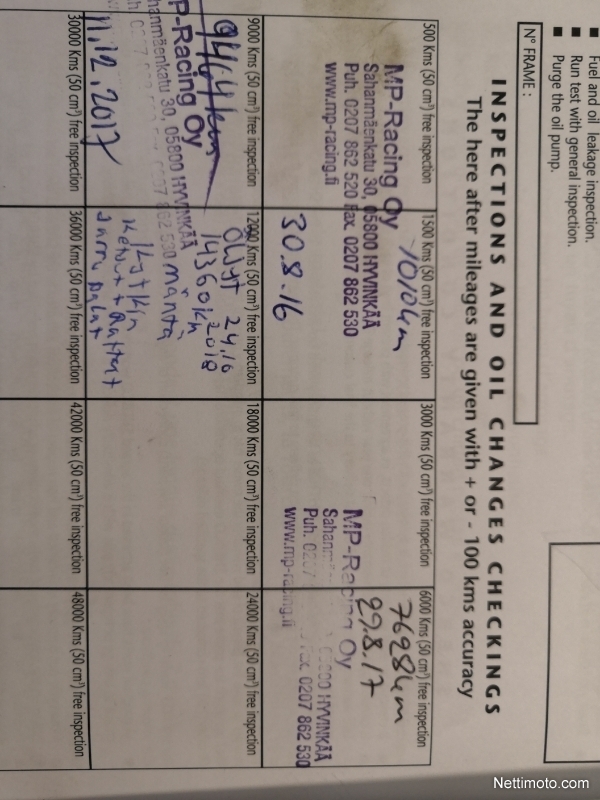 Fuel and oil leakage inspection.
Run test with general inspection.
Purge the oil pump.
N° FRAME :
INSPECTIONS AND OIL CHANGES CHECKINGS
The here after mileages are given with + or - 100 kms accuracy
500 Kms (50 cm³) free inspection
MP-Racing Oy
Sahanmäenkatu 30, 05800 HYVINKÄÄ
Puh. 0207 862 520 Fax. 0207 862 530
www.mp-racing.fi
1500 Kms (50 cm³) free inspection
1010km
30.8-16
3000 Kms (50 cm³) free inspection
6000 Kms (50 cm³) free inspection
7628km
29.8.17
MP-Racing Oy
05800 HYVINKÄÄ
Puh. Fax. 0207 862 530
www.mp-racing.fi
9000 Kms (50 cm³) free inspection
9464km
P-Racing Oy
hanmäenkatu 30, 05800 HYVINKÄÄ
862 530
11.12.2017
12000 Kms (50 cm³) free inspection
Öljyt 24.10
2018
14360km
mäntä
Ketjut + Rattaat +
Jarru palat
18000 Kms (50 cm³) free inspection
24000 Kms (50 cm³) free inspection
30000 Kms (50 cm³) free inspection
36000 Kms (50 cm³) free inspection
42000 Kms (50 cm³) free inspection
48000 Kms (50 cm³) free inspection
Nettimoto.com